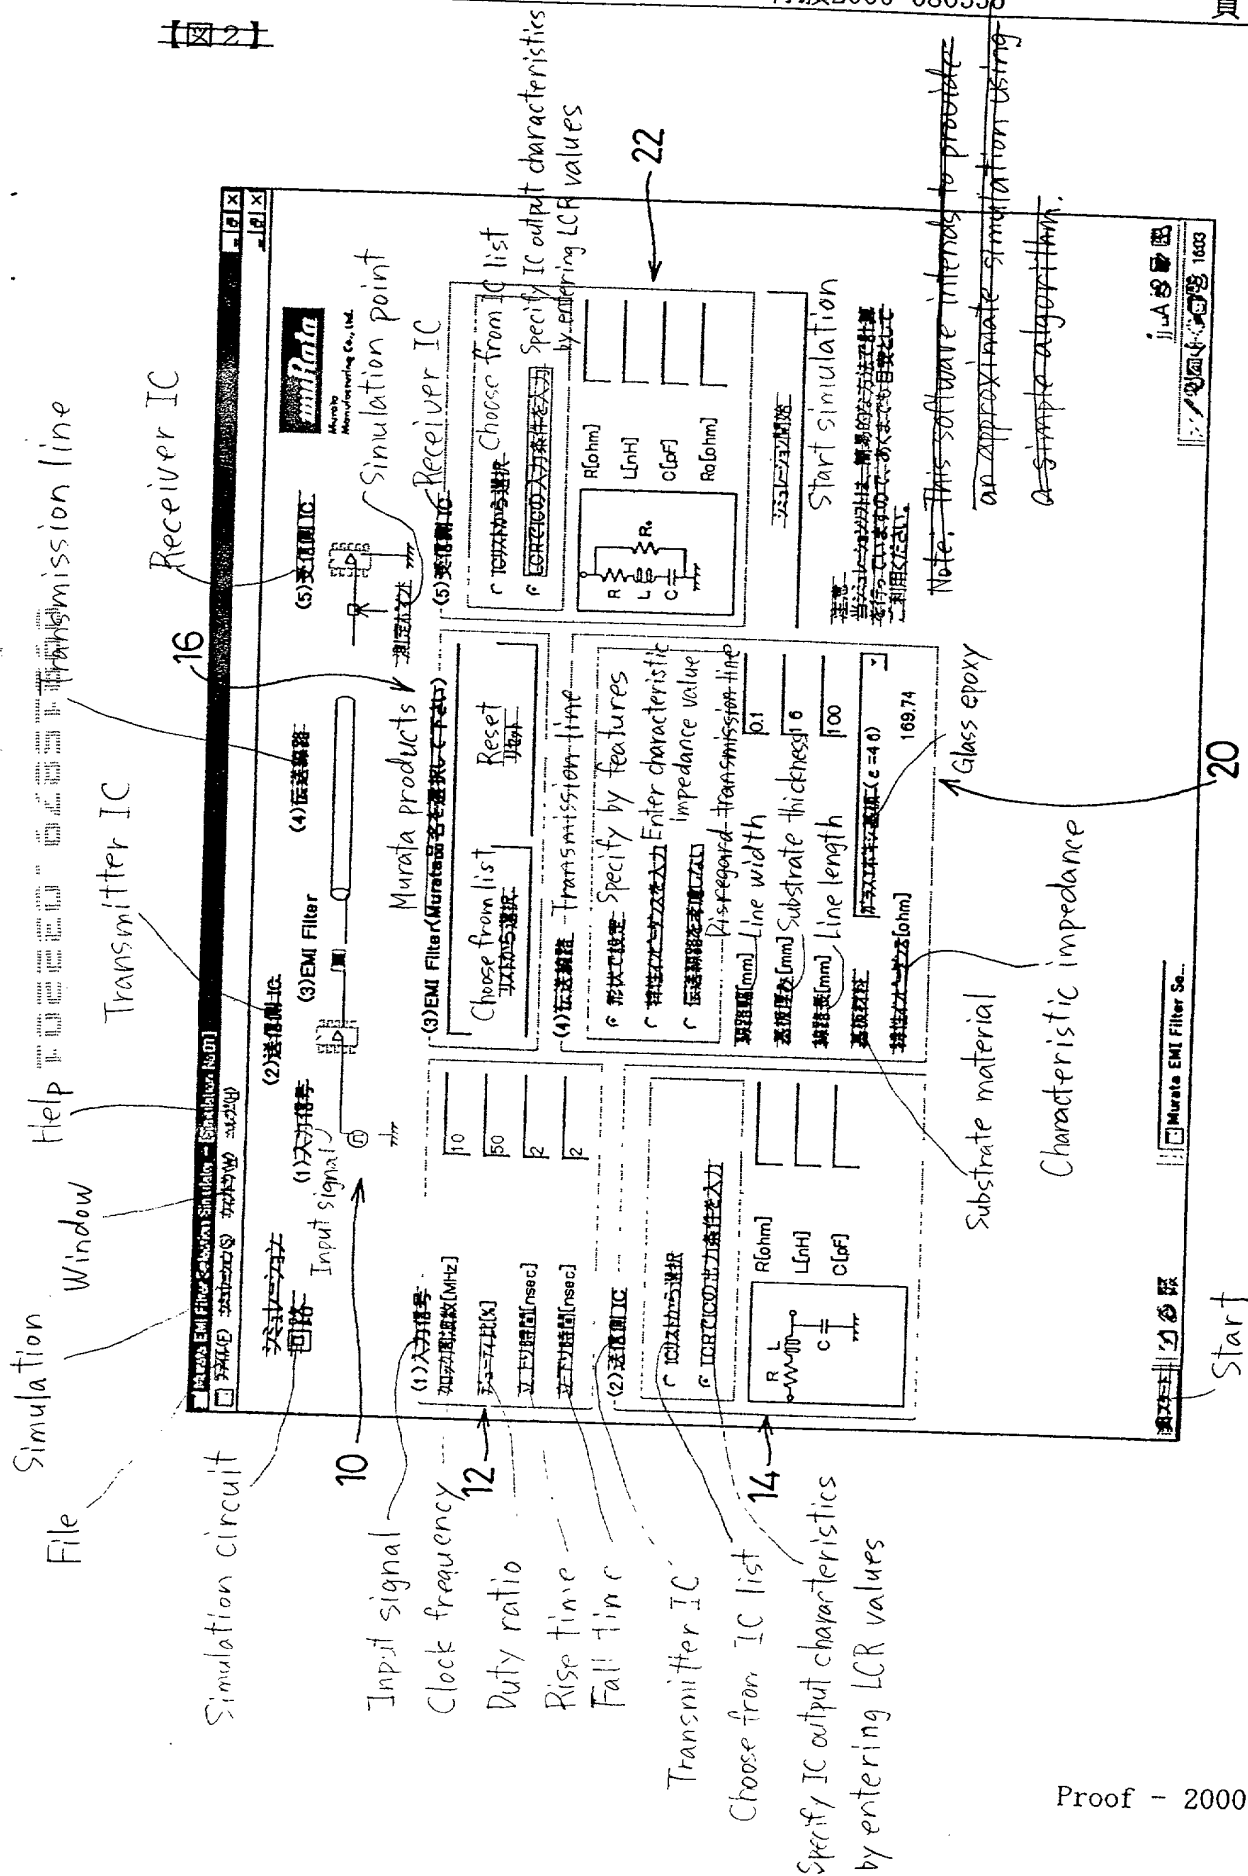 【図2】
File
Simulation
Window
Help
Transmitter IC
Transmission line
Receiver IC
16
Simulation circuit
Murata EMI Filter Selection Simulator - [Simulation No:01]
ファイル(F) シミュレーション(S) ウィンドウ(W) ヘルプ(H)
シミュレーション
回路
(1)入力信号
Input signal
(2)送信側IC
(3)EMI Filter
(4)伝送線路
(5)受信側IC
測定ポイント
Simulation point
muRata
Murata
Manufacturing Co., Ltd.
10
Input signal
Clock frequency
12
Duty ratio
Rise time
Fall time
(1)入力信号
クロック周波数[MHz] 10
デューティ比[%] 50
立上り時間[nsec] 2
立下り時間[nsec] 2
Transmitter IC
Choose from IC list
14
Specify IC output characteristics
by entering LCR values
(2)送信側IC
ICリストから選択
LCRでICの出力条件を入力
R L
C
R[ohm]
L[nH]
C[pF]
Murata products
(3)EMI Filter(Murata品名を選択して下さい)
Choose from list
リストから選択
Reset
リセット
(4)伝送線路 Transmission line
形状で設定 Specify by features
特性インピーダンスを入力 Enter characteristic
impedance value
伝送線路を考慮しない
Disregard transmission line
線路幅[mm] Line width 0.1
基板厚み[mm] Substrate thickness 1.6
線路長[mm] Line length 100
基板材料 ガラスエポキシ基板(ε=4.6)
特性インピーダンス[ohm] 169.74
Glass epoxy
Substrate material
Characteristic impedance
20
(5)受信側IC Receiver IC
ICリストから選択 Choose from IC list
LCRでICの入力条件を入力 Specify IC output characteristics
by entering LCR values
22
R
L
C
Ro
R[ohm]
L[nH]
C[pF]
Ro[ohm]
シミュレーション開始
Start simulation
注意
当シミュレーションソフトは、簡易的な方法で計算
を行っていますので、あくまでも目安として
ご利用ください。
Note: This software intends to provide
an approximate simulation using
a simple algorithm.
スタート
Start
Murata EMI Filter Se...
16:03
Proof - 2000